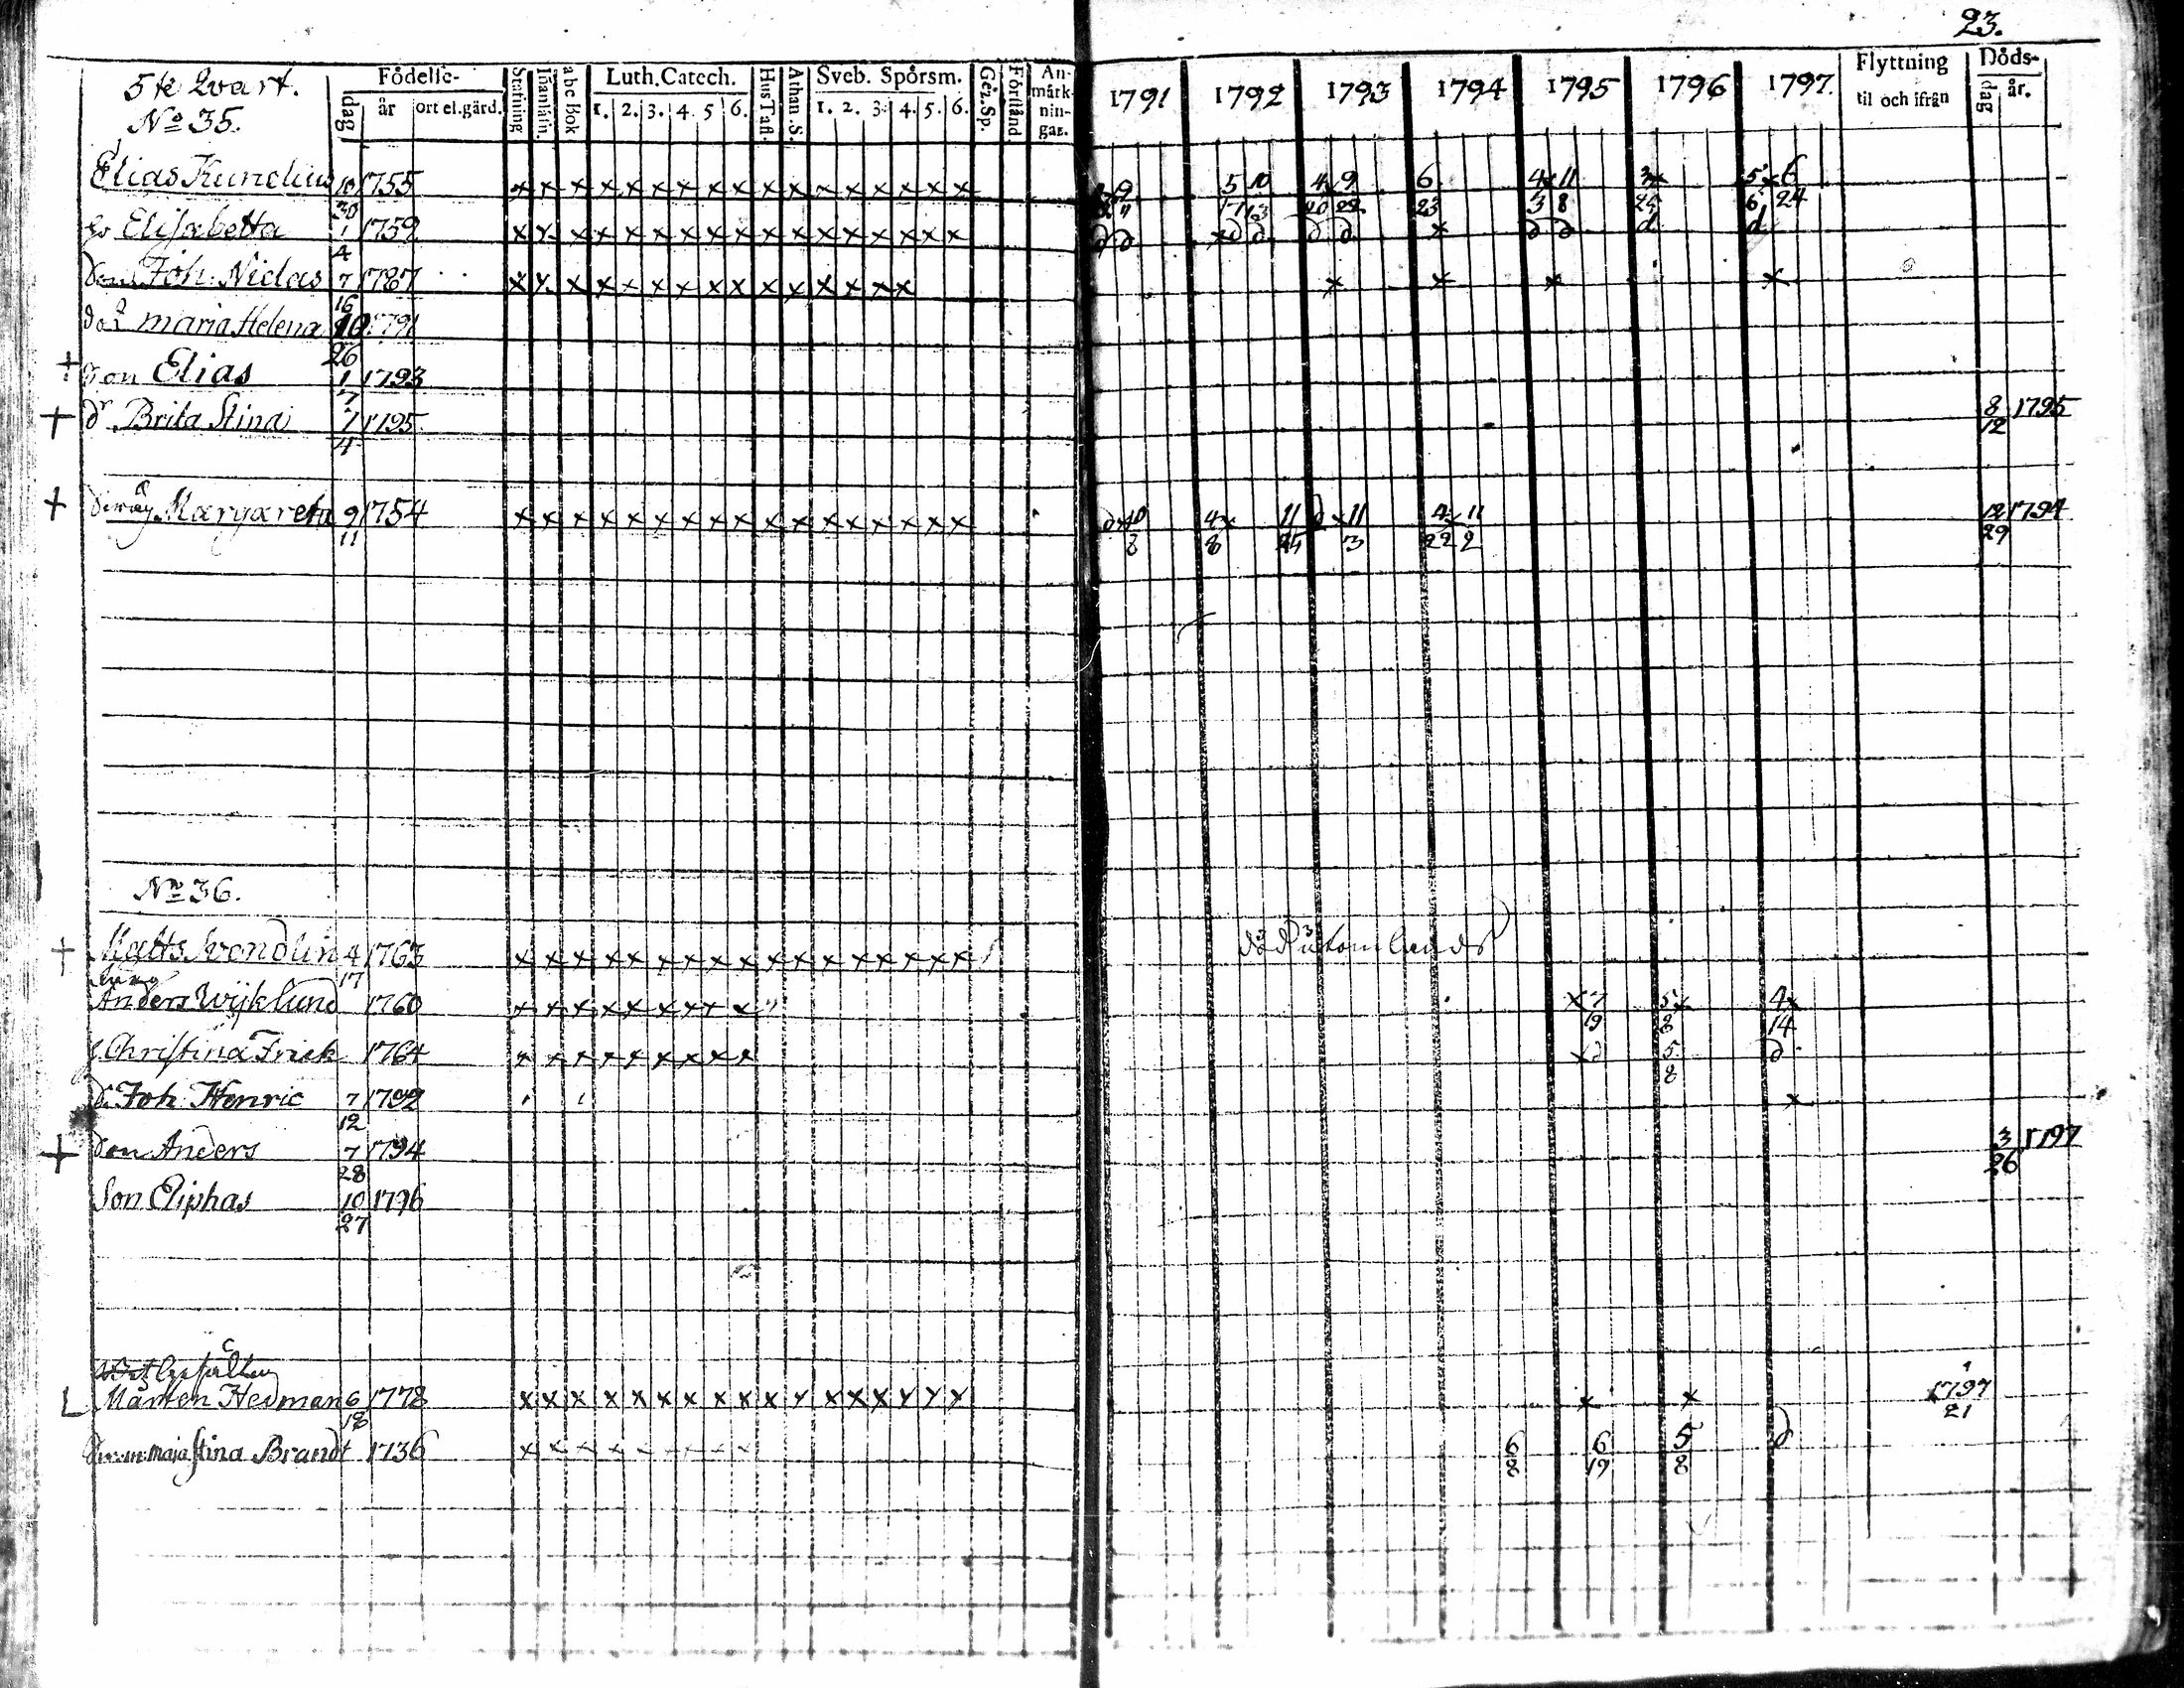 23.
5te Qvart.
No 35.
Födelse-
dag
år
ort el. gård.
Stafning
Innanläsn.
abc Bok
Luth. Catech.
1. 2. 3. 4. 5 6.
Hus Tafl.
Athan. S.
Sveb. Spörsm.
1. 2. 3. 4. 5. 6.
Gez. Sp.
Förstånd
An-
märk-
nin-
gar.
1791 1792 1793 1794 1795 1796 1797
Flyttning
til och ifrån
Döds-
dag
år.
Elias Kunelius 10 1755 x x x x x x x x x x x x x x x x x 5 10 4 x 9 6 4 x 11 5 x 6
30
Elisabetta 1 1759 x x x x x x x x x x x x x x x x x
4
Son Joh. Niclas 7 1787 x x x x x x x x x x x x x x x x x x x
16
Maria Helena 10 1791
26
+ Son Elias 1 1793
7
+ dr Brita Stina 7 1795 8 1795
4 12
+ Margareta 9 1754 x x x x x x x x x x x x x x x x x 4 x 11 d x 11 4 x 11 12 1794
11 8 8 3 22 2 29
No 36.
+ Matts 4 1763 x x x x x x x x x x x x x x x x x död utomlands
17
Anders Wijklund 1760 x x x x x x x x x x 7 5 x 4 x
19 8 14
Christina Frisk 1764 x x x x x x x x x x d 5 d
8
Joh. Henric 7 1792 x
12
+ Son Anders 7 1794 3 1797
28 26
Son Eliphas 10 1796
27
L Mårten Hedman 6 1778 x x x x x x x x x x x x x x x x x x x 1797
18 21
Maja Stina Brandt 1736 x x x x x x x x x 6 6 5 d
8 19 8